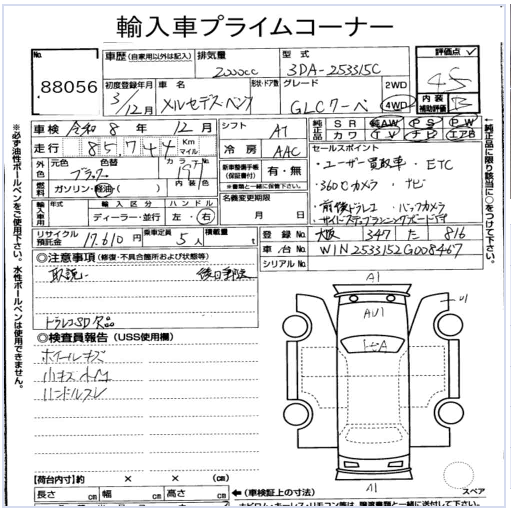 輸入車プライムコーナー
No.
88056
車歴 (自家用以外は記入)
排気量
2000cc
型式
3DA-253315C
評価点
4.5
内装
補助評価
B
初度登録年月
3/12月
車名
メルセデスベンツ
形状・ドア数
グレード
GLCクーペ
2WD
4WD
車検 令和 8年 12月
走行 85,744 Km マイル
シフト AT
冷房 AAC
純正品
SR AW PS PW
カワ TV ナビ エアB
外色
元色 ブラック
色替
カラーNo. 197
内装色
燃料 ガソリン・軽油・( )
新車整備手帳
(保証書付)
有・無
※書類と一緒に保管下さい。
名義変更期限
月 日
輸入車用
年式
輸入区分
ディーラー・並行
ハンドル
左・右
リサイクル
預託金
17,610円
乗車定員
5人
積載量
t
セールスポイント
・ユーザー買取車 ・ETC
・360°カメラ ・ナビ
・前後ドラレコ ・バックカメラ
登録No. 大阪 347 た 816
車台No. W1N2533152G008467
シリアルNo.
◎注意事項 (修復・不具合箇所および状態等)
取説 後日郵送
ドラレコSD欠品
◎検査員報告 (USS使用欄)
ホイールキズ
小キズ
ハンドルスレ
A1
AU1
U1
A1
スペア
【荷台内寸】約 × × (cm)
長さ cm 幅 cm 高さ cm
(車検証上の寸法)
※必ず油性ボールペンをご使用下さい。水性ボールペンは使用できません。
純正品に限り該当に○をつけて下さい。